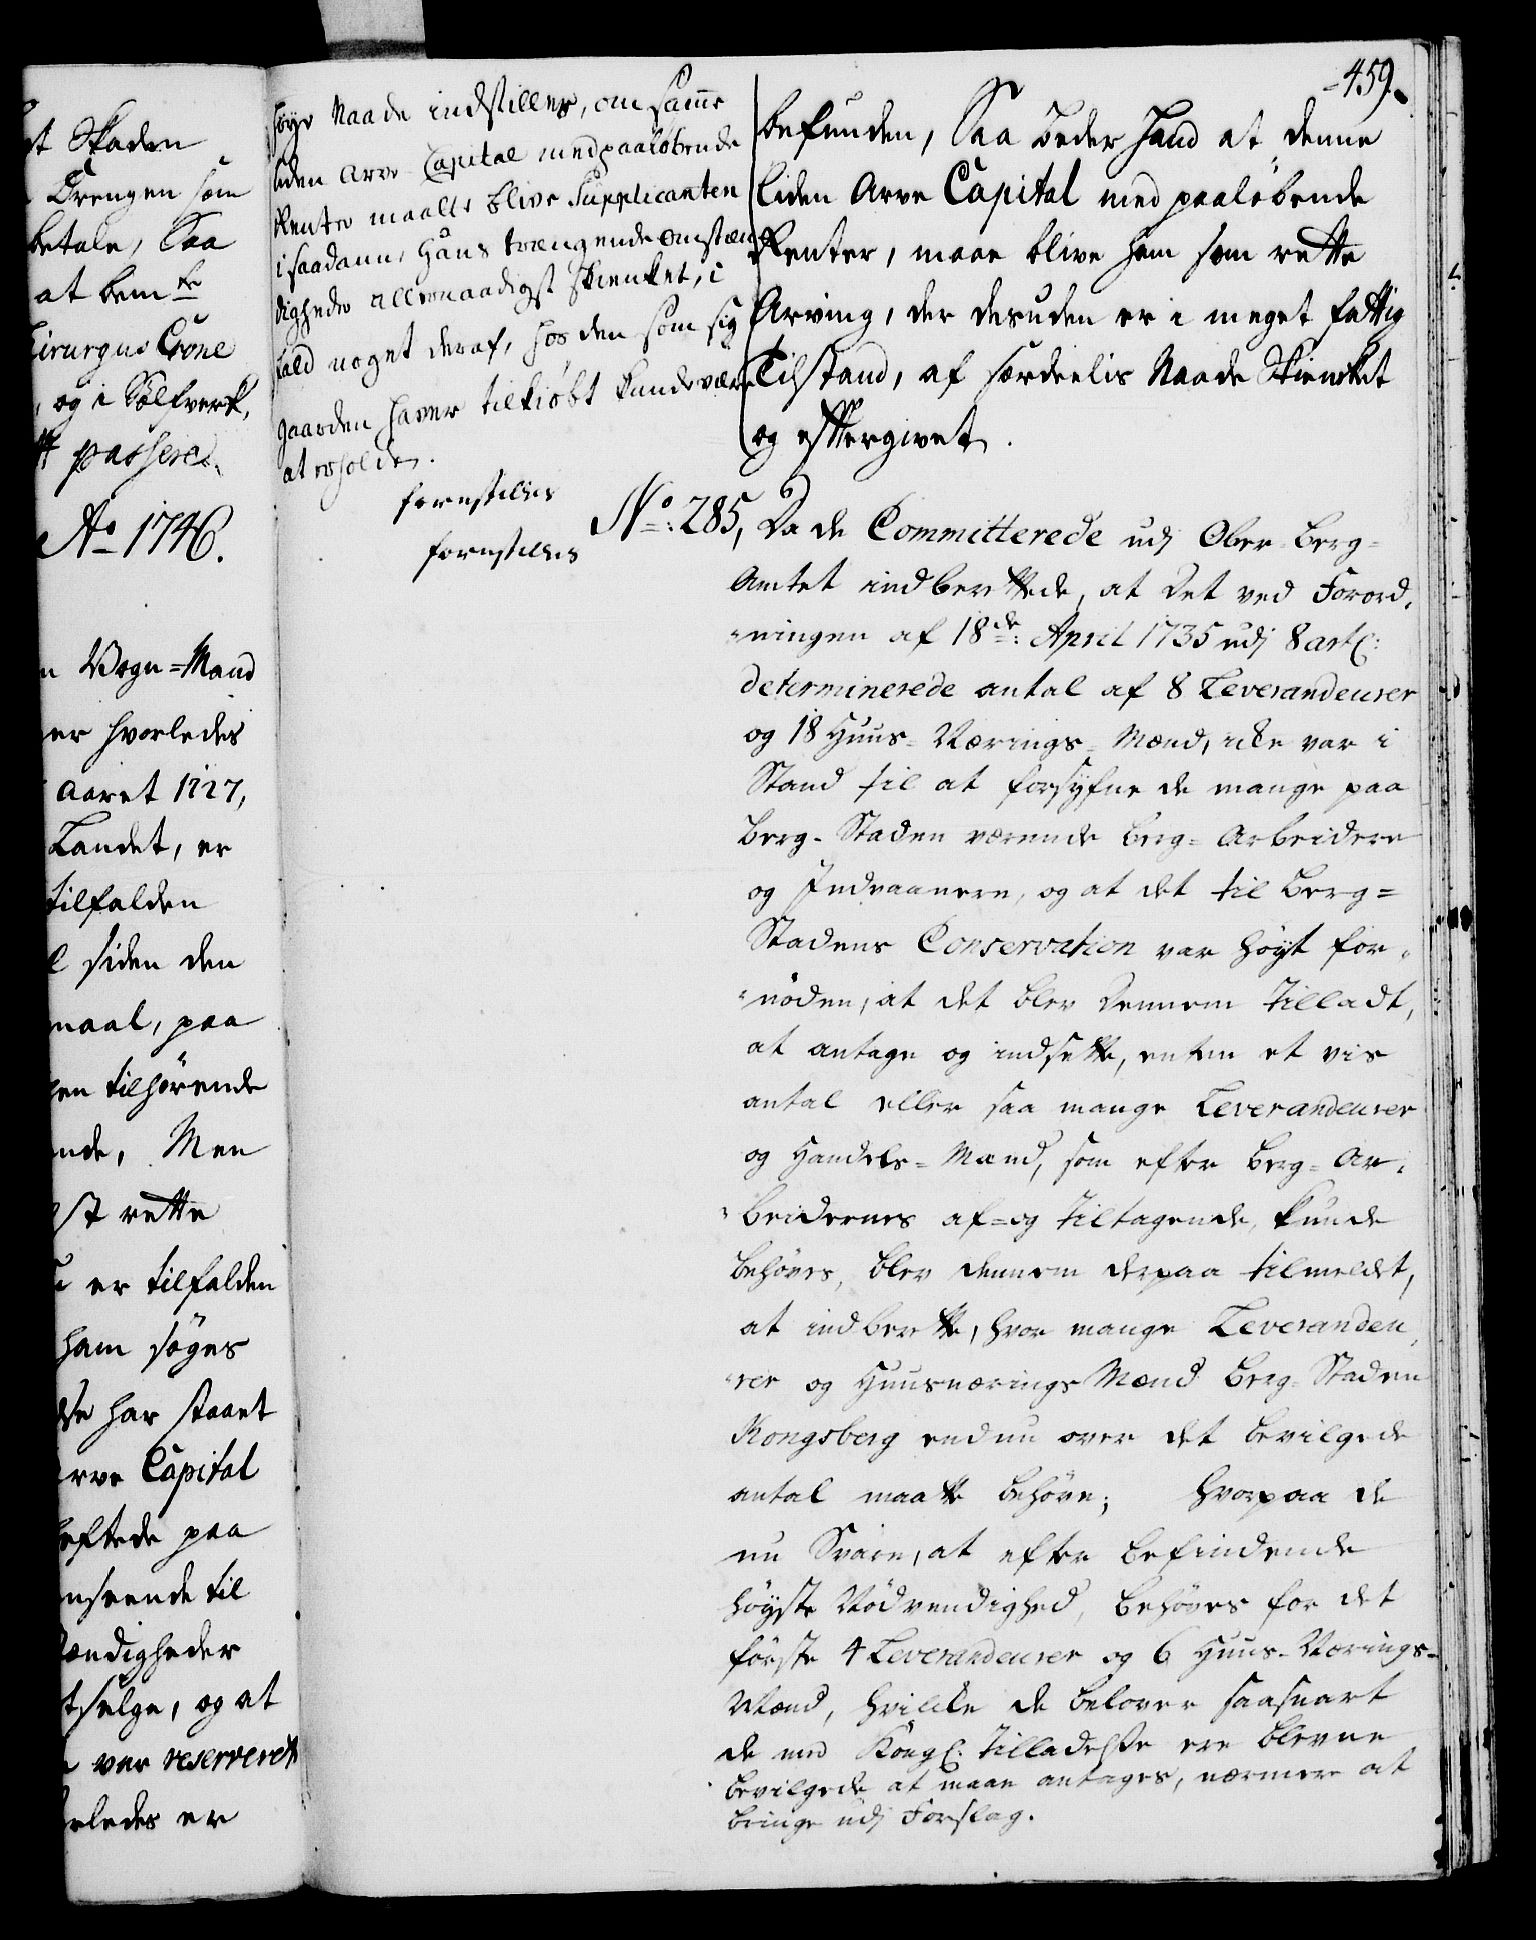 st Skaden
Drengen som
betale, Saa
at bem.te
Chirurgus Crone
og i Sølfverk,
passere.
Ao 1746.
n Vogn-Mand
er hvorledes
Aaret 1727,
Landet, er
tilfalden
siden den
maal, paa
en tilhørende
nde, Men
rette
er tilfalden
ham søges
har staaet
rve Capital
hæftede paa
nseende til
stændigheder
tselge, og at
var reserveret
rledes er
høye Naade indstilles, om samme
liden Arve-Capital med paaløbende
Rente maatte blive Supplicanten
i saadanne Hans trængende omstæn-
digheder allernaadigst skienket, i
fald noget deraf, hos den som sig
gaarden haver tilkiøbt kunde være
at erholde.
forestilles
forestilles
459.
befunden, Saa beder hand at denne
liden Arve Capital med paaløbende
Renter, maae blive ham som rette
Arving, der desuden er i meget fattig
Tilstand, af særdeelis Naade Skienket
og eftergivet.
No: 285, Da de Committerede udj Ober-Berg-
Amtet indberettede, at det ved Forord-
ningen af 18de: April 1735 udj 8 artl:
determinerede antal af 8 Leverandeurer
og 18 Huus-Nærings-Mænd, icke var i
Stand til at forsyfne de mange paa
Berg-Staden værende Berg-Arbeidere
og Indvaanere, og at det til Berg-
Stadens Conservation var høyt for-
nøden, at det blev dennem tilladt,
at antage og indsette, enten et vis
antal eller saa mange Leverandeurer
og Handels-Mænd, som efter Berg-Ar-
beidernes af- og tiltagende, kunde
behøves, blev dennem derpaa tilmeldet,
at indberette, hvor mange Leverandeu-
rer og Huusnærings Mænd Berg-Staden
Kongsberg endnu over det bevilgede
antal maatte behøve; hvorpaa de
nu Svare, at efter befindende
høyste Nødvendighed, behøves for det
første 4 Leverandeurer og 6 Huus-Nærings-
Mænd, hvilcke de belover saasnart
de med Kongl: tilladelse ere blevne
bevilgede at maae antages, nærmere at
bringe udj Forslag.